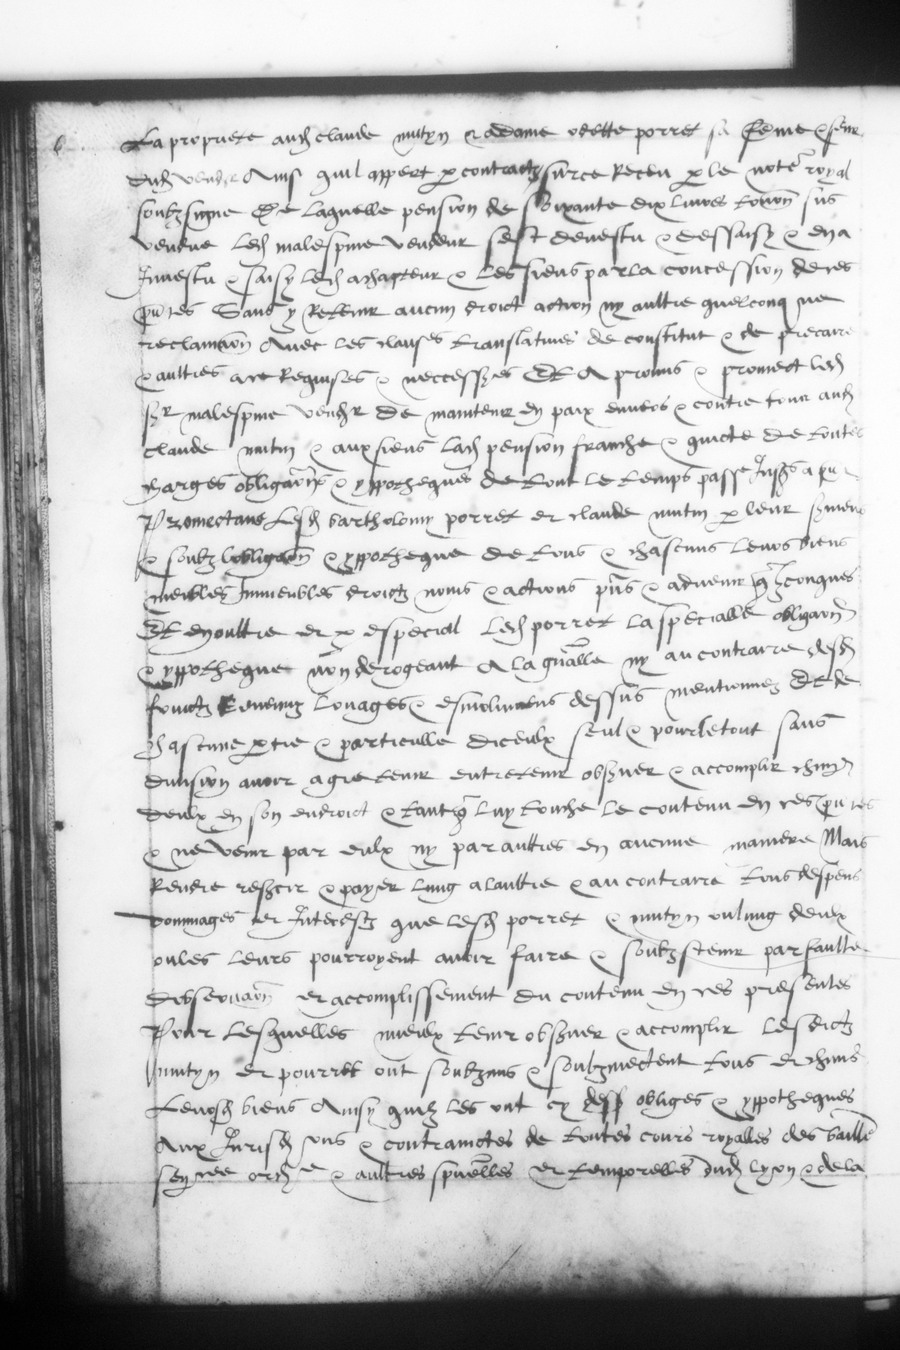 La propriete aud claude mutyn & a dame odette porret sa feme & seur
dud vendr Ainsi quil appert p contract sur ce Receu p le note royal
soubzsigne De laquelle pension de soixante dix livres tourn sus
vendue led malespine vendeur sest devestu & dessaisy & en a
Investu & saisy led achapteur & les siens par la concession de ces
pntes Sans y Retenir aucun droict action ny aultre quelconq ne
reclamaon Avec les clauses translatives de constitut & de precaire
& aultres a ce Requises & necesses Et A promis & promect led
sr malespine vendr de maintenir en paix envers & contre tous aud
claude mutin & aux siens lad pension franche & quicte de toutes
charges obligaons & yppotheques de tout le temps passe Jusqs a pnt
Promectans Lesd bartholomy porret et claude mutin p leur serment
& soubz lobligaon & yppotheque de tous & chascuns leurs biens
meubles Immeubles droictz noms & actions pns & advenir qzconques
Et en oultre et p especial Led porret la specialle obligaon
& yppotheque non derogeant A la gnalle ny au contraire desd
fruictz Revenuz Louages & esmolumens dessus mentionnez Et de
chascune ptie & particulle diceulx seul & pour le tout sans
division avoir agre tenir entretenir obsver & accomplir chun
deulx en son endroict & tant q luy touche le contenu en ces pntes
& ne venir par eulx ny par aultres en aucune maniere Mais
Rendre resar & payer lung a laultre & au contraire tous despens
dommages et Interestz que lesd porret & mutyn ou lung deulx
ou les leurs pourroyent avoir faire & soubzstenir par faulte
dobservaon et accomplissement du contenu en ces presentes
Pour Lesquelles mieulx tenir obsver & accomplir Lesdictz
mutyn et pourret ont soubzmis & soubzmectent tous et chuns
Leursd biens Ainsy quilz les ont cy dess obliges & yppotheques
Aux Jurisd ons & contrainctes de toutes cours royalles des baille
sen cee ordre & aultres spuelles et temporelles dud lyon & de la